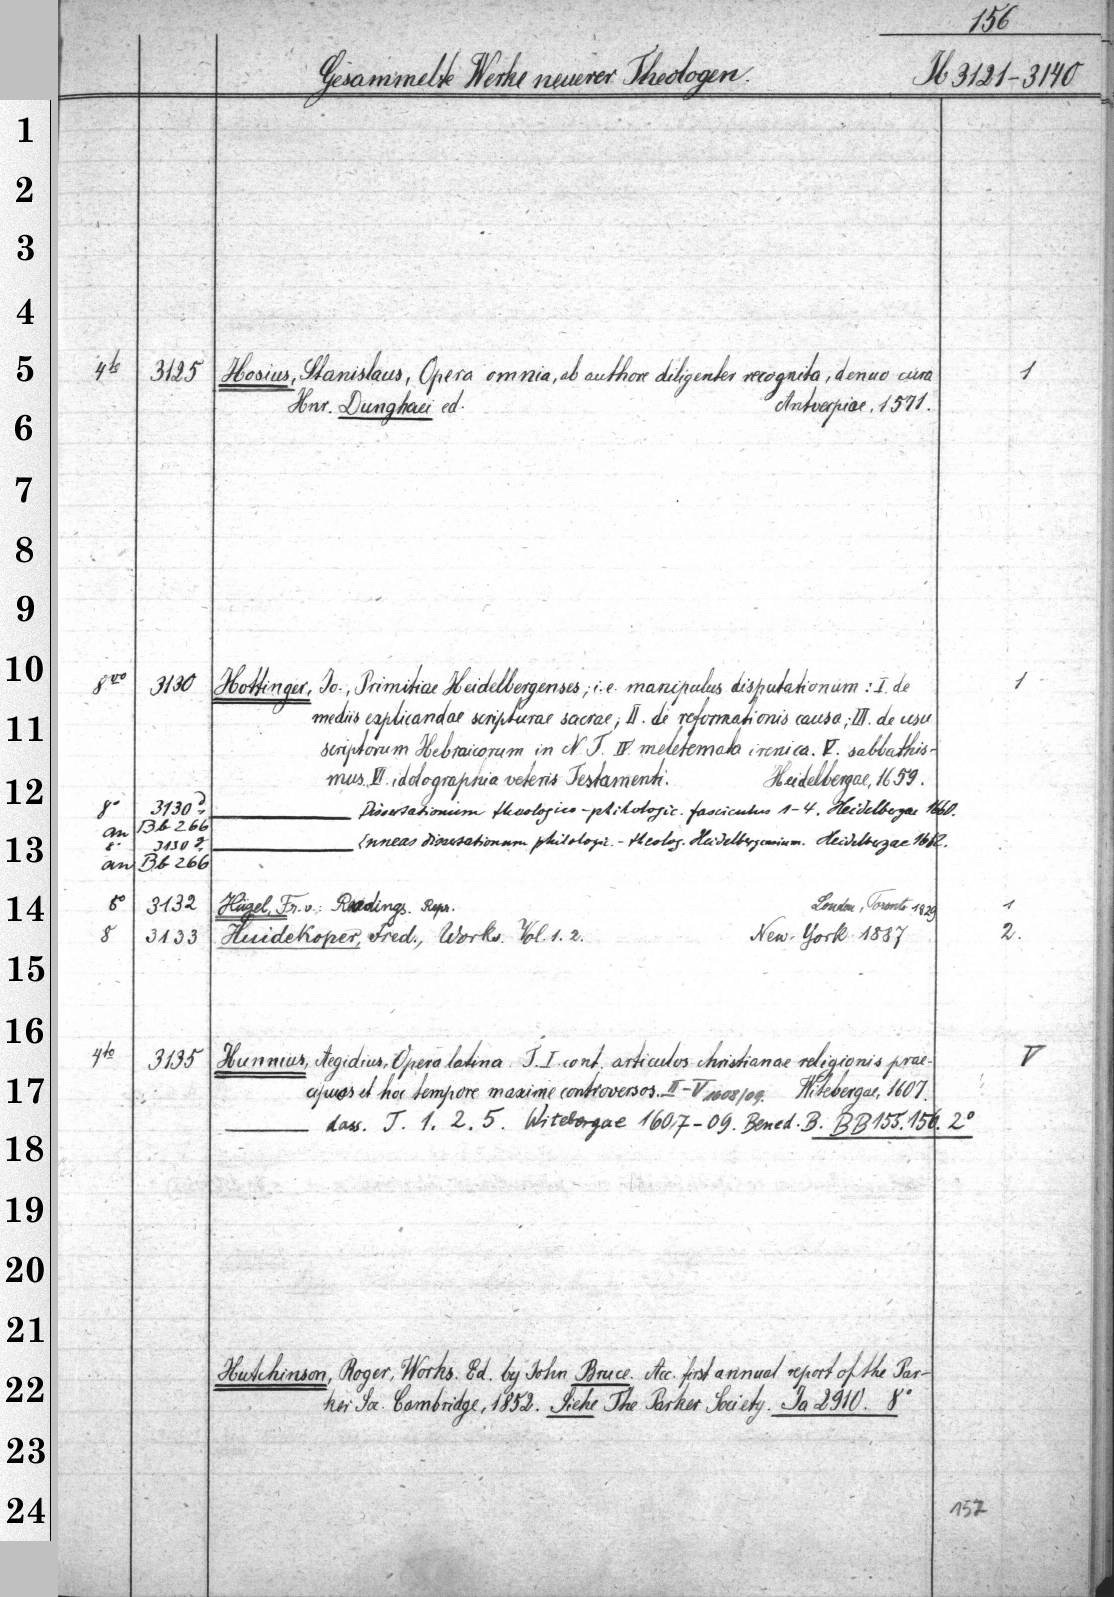 156
Gesammelte Werke neuerer Theologen. 3121-3140
1
2
3
4
5 4to 3125 Hosius, Stanislaus, Opera omnia, ab authore diligenter recognita, denuo cura 1
Hnr. Dunghaei ed. Antverpiae, 1571.
6
7
8
9
10 8vo 3130 Hottinger, Jo., Primitiae Heidelbergenses, i.e. manipulus disputationum: I. de 1
mediis explicandae scripturae sacrae; II. de reformationis causa; III. de usu
11
scriptorum Hebraicorum in N. T. IV meletemata irenica. V. sabbathis-
mus. VI. idolographia veteris Testamenti. Heidelbergae, 1659.
12
8° 3130 Dissertationum theologico-philologic. fasciculus 1-4. Heidelbergae 1660.
an Bb 266
13 8° 3130 Enneas dissertationum philologic.-theolog. Heidelbergensium. Heidelbergae 1662.
an Bb 266
14 8° 3132 Hügel, Fr. v.: Readings. Repr. London, Toronto 1929 1
8 3133 Huidekoper, Fred., Works. Vol. 1. 2. New-York 1887 2.
15
16
4to 3135 Hunnius, Aegidius, Opera latina. T. I cont. articulos christianae religionis prae- V
17 cipuos et hoc tempore maxime controversos. II-V 1608/09. Witebergae, 1607.
dass. T. 1. 2. 5. Witebergae 1607-09. Bened. B. BB 155. 156. 2°
18
19
20
21
Hutchinson, Roger, Works. Ed. by John Bruce. Acc. first annual report of the Par-
22
ker Soc. Cambridge, 1852. Siehe The Parker Society. Ia 2910. 8°
23
24 157